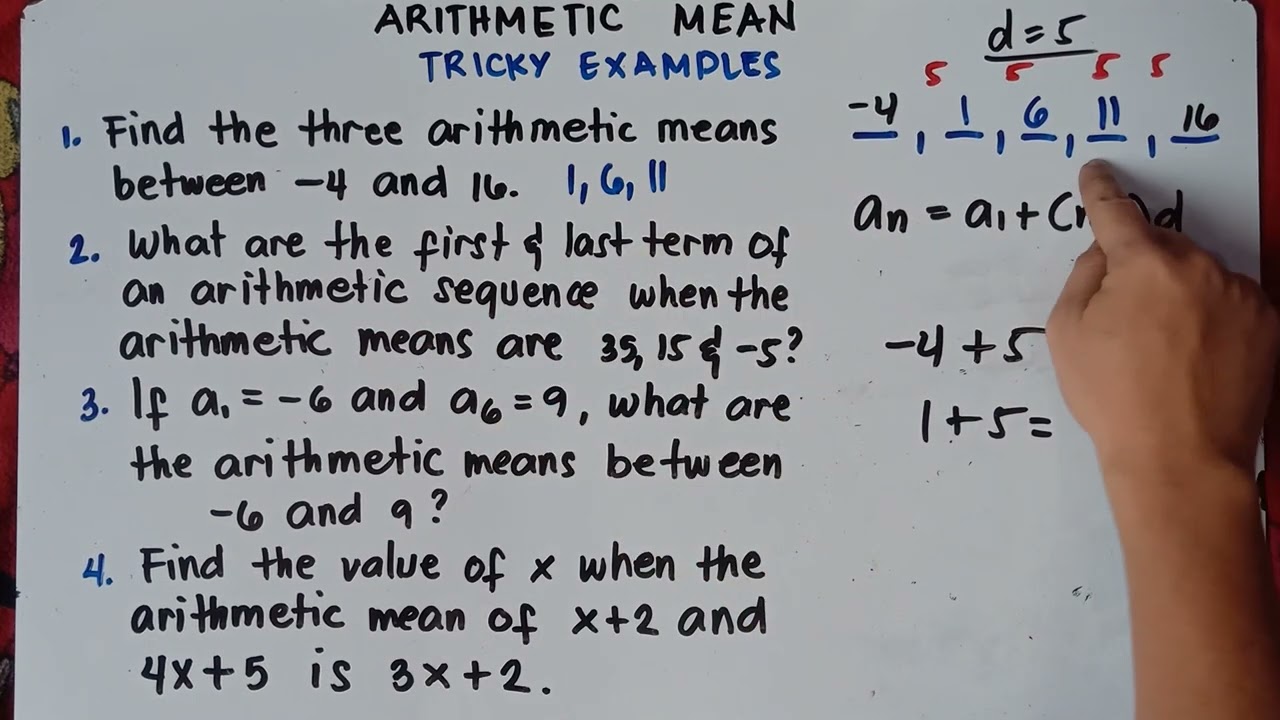 ARITHMETIC MEAN
TRICKY EXAMPLES
1. Find the three arithmetic means
between -4 and 16. 1, 6, 11
2. What are the first & last term of
an arithmetic sequence when the
arithmetic means are 35, 15 & -5?
3. If a₁ = -6 and a₆ = 9, what are
the arithmetic means between
-6 and 9?
4. Find the value of x when the
arithmetic mean of x+2 and
4x+5 is 3x+2.
d = 5
5 5 5 5
-4, 1, 6, 11, 16
an = a₁ + ( d
-4 + 5
1 + 5 =